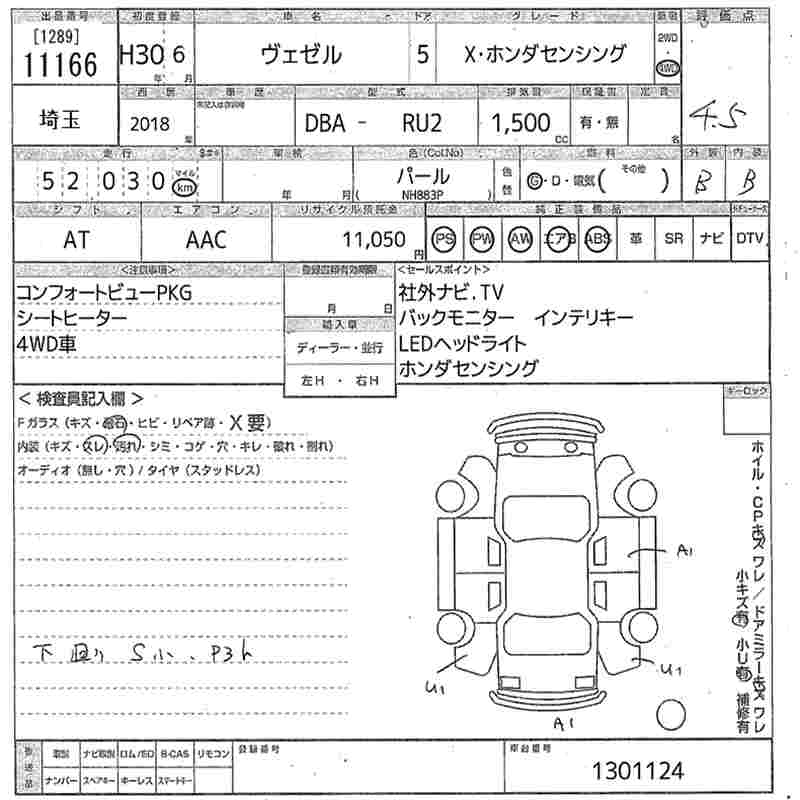 出品番号 初度登録 車名 ドア グレード 駆動 評価点
[1289]
11166 H30年 6月 ヴェゼル 5 X・ホンダセンシング 2WD 4WD 4.5
埼玉 西暦 車歴 型式 排気量 保証書 定員
2018年 未記入は自家用 DBA - RU2 1,500cc 有・無 名
走行 車検 色(Col.No) 色替 燃料 外装 内装
52030 マイル km 年 月 パール ( NH883P G・D・電気( その他 ) B B
シフト エアコン リサイクル預託金 純正装備品
AT AAC 11,050円 PS PW AW エアB ABS 革 SR ナビ DTV
<注意事項> 登録書類有効期限 <セールスポイント>
コンフォートビューPKG 月 日 社外ナビ.TV
シートヒーター 輸入車 バックモニター インテリキー
4WD車 ディーラー・並行 LEDヘッドライト
左H ・ 右H ホンダセンシング
< 検査員記入欄 > キーロック
Fガラス(キズ・飛石・ヒビ・リペア跡・X要)
内装(キズ・スレ・汚れ・シミ・コゲ・穴・キレ・破れ・割れ)
オーディオ(無し・穴)/タイヤ(スタッドレス)
ホイル・CPキズ ワレ/ドアミラーキズ ワレ
小キズ有 小U有 補修有
A1
下廻りS小、P3ケ
U1 U1
A1
後送品 取説 ナビ取説 ロム/SD B-CAS リモコン 登録番号 車台番号
ナンバー スペアキー キーレス スマートキー 1301124